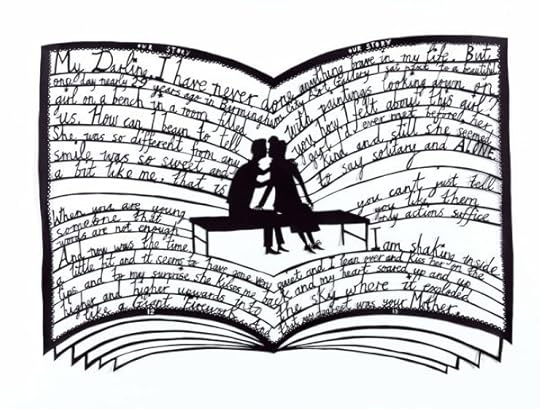 OUR STORY OUR STORY
My Darling, I have never done anything brave in my life. But
one day nearly 25 years ago in Birmingham City Art Gallery I sat next to a beautiful
girl on a bench in a room filled with paintings looking down on
us. How can I begin to tell you how I felt about this girl
She was so different from any girl I'd ever met before, her
smile was so sweet and kind and still she seemed
a bit like me. that is to say solitary and ALONE.
When you are young you can't just tell
someone that you like them
words are not enough only actions suffice
And now was the time I am shaking inside
a little bit and it seems to have gone very quiet and I lean over and kiss her on the
lips and to my surprise she kisses me back and my heart soared up and up
higher and higher upwards into the sky where it exploded
like a Giant Firework. And that my dearest was your Mother.